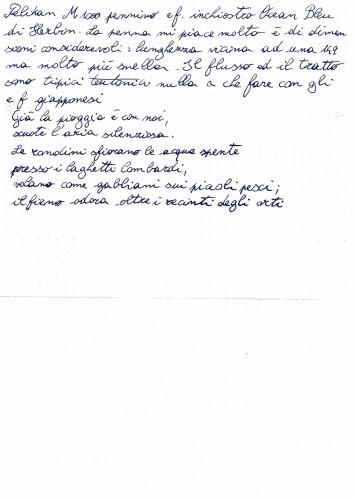 Pelikan M 800 pennino ef. inchiostro Ocean Bleu
di Herbin. La penna mi piace molto è di dimen
sioni considerevoli: lunghezza vicina ad una 149
ma molto più snella. Il flusso ed il tratto
sono tipici teutonici nulla a che fare con gli
ef giapponesi
Già la pioggia è con noi,
scuote l'aria silenziosa.
Le rondini sfiorano le acque spente
presso i laghetti lombardi,
volano come gabbiani sui piccoli pesci;
il fieno odora oltre i recinti degli orti